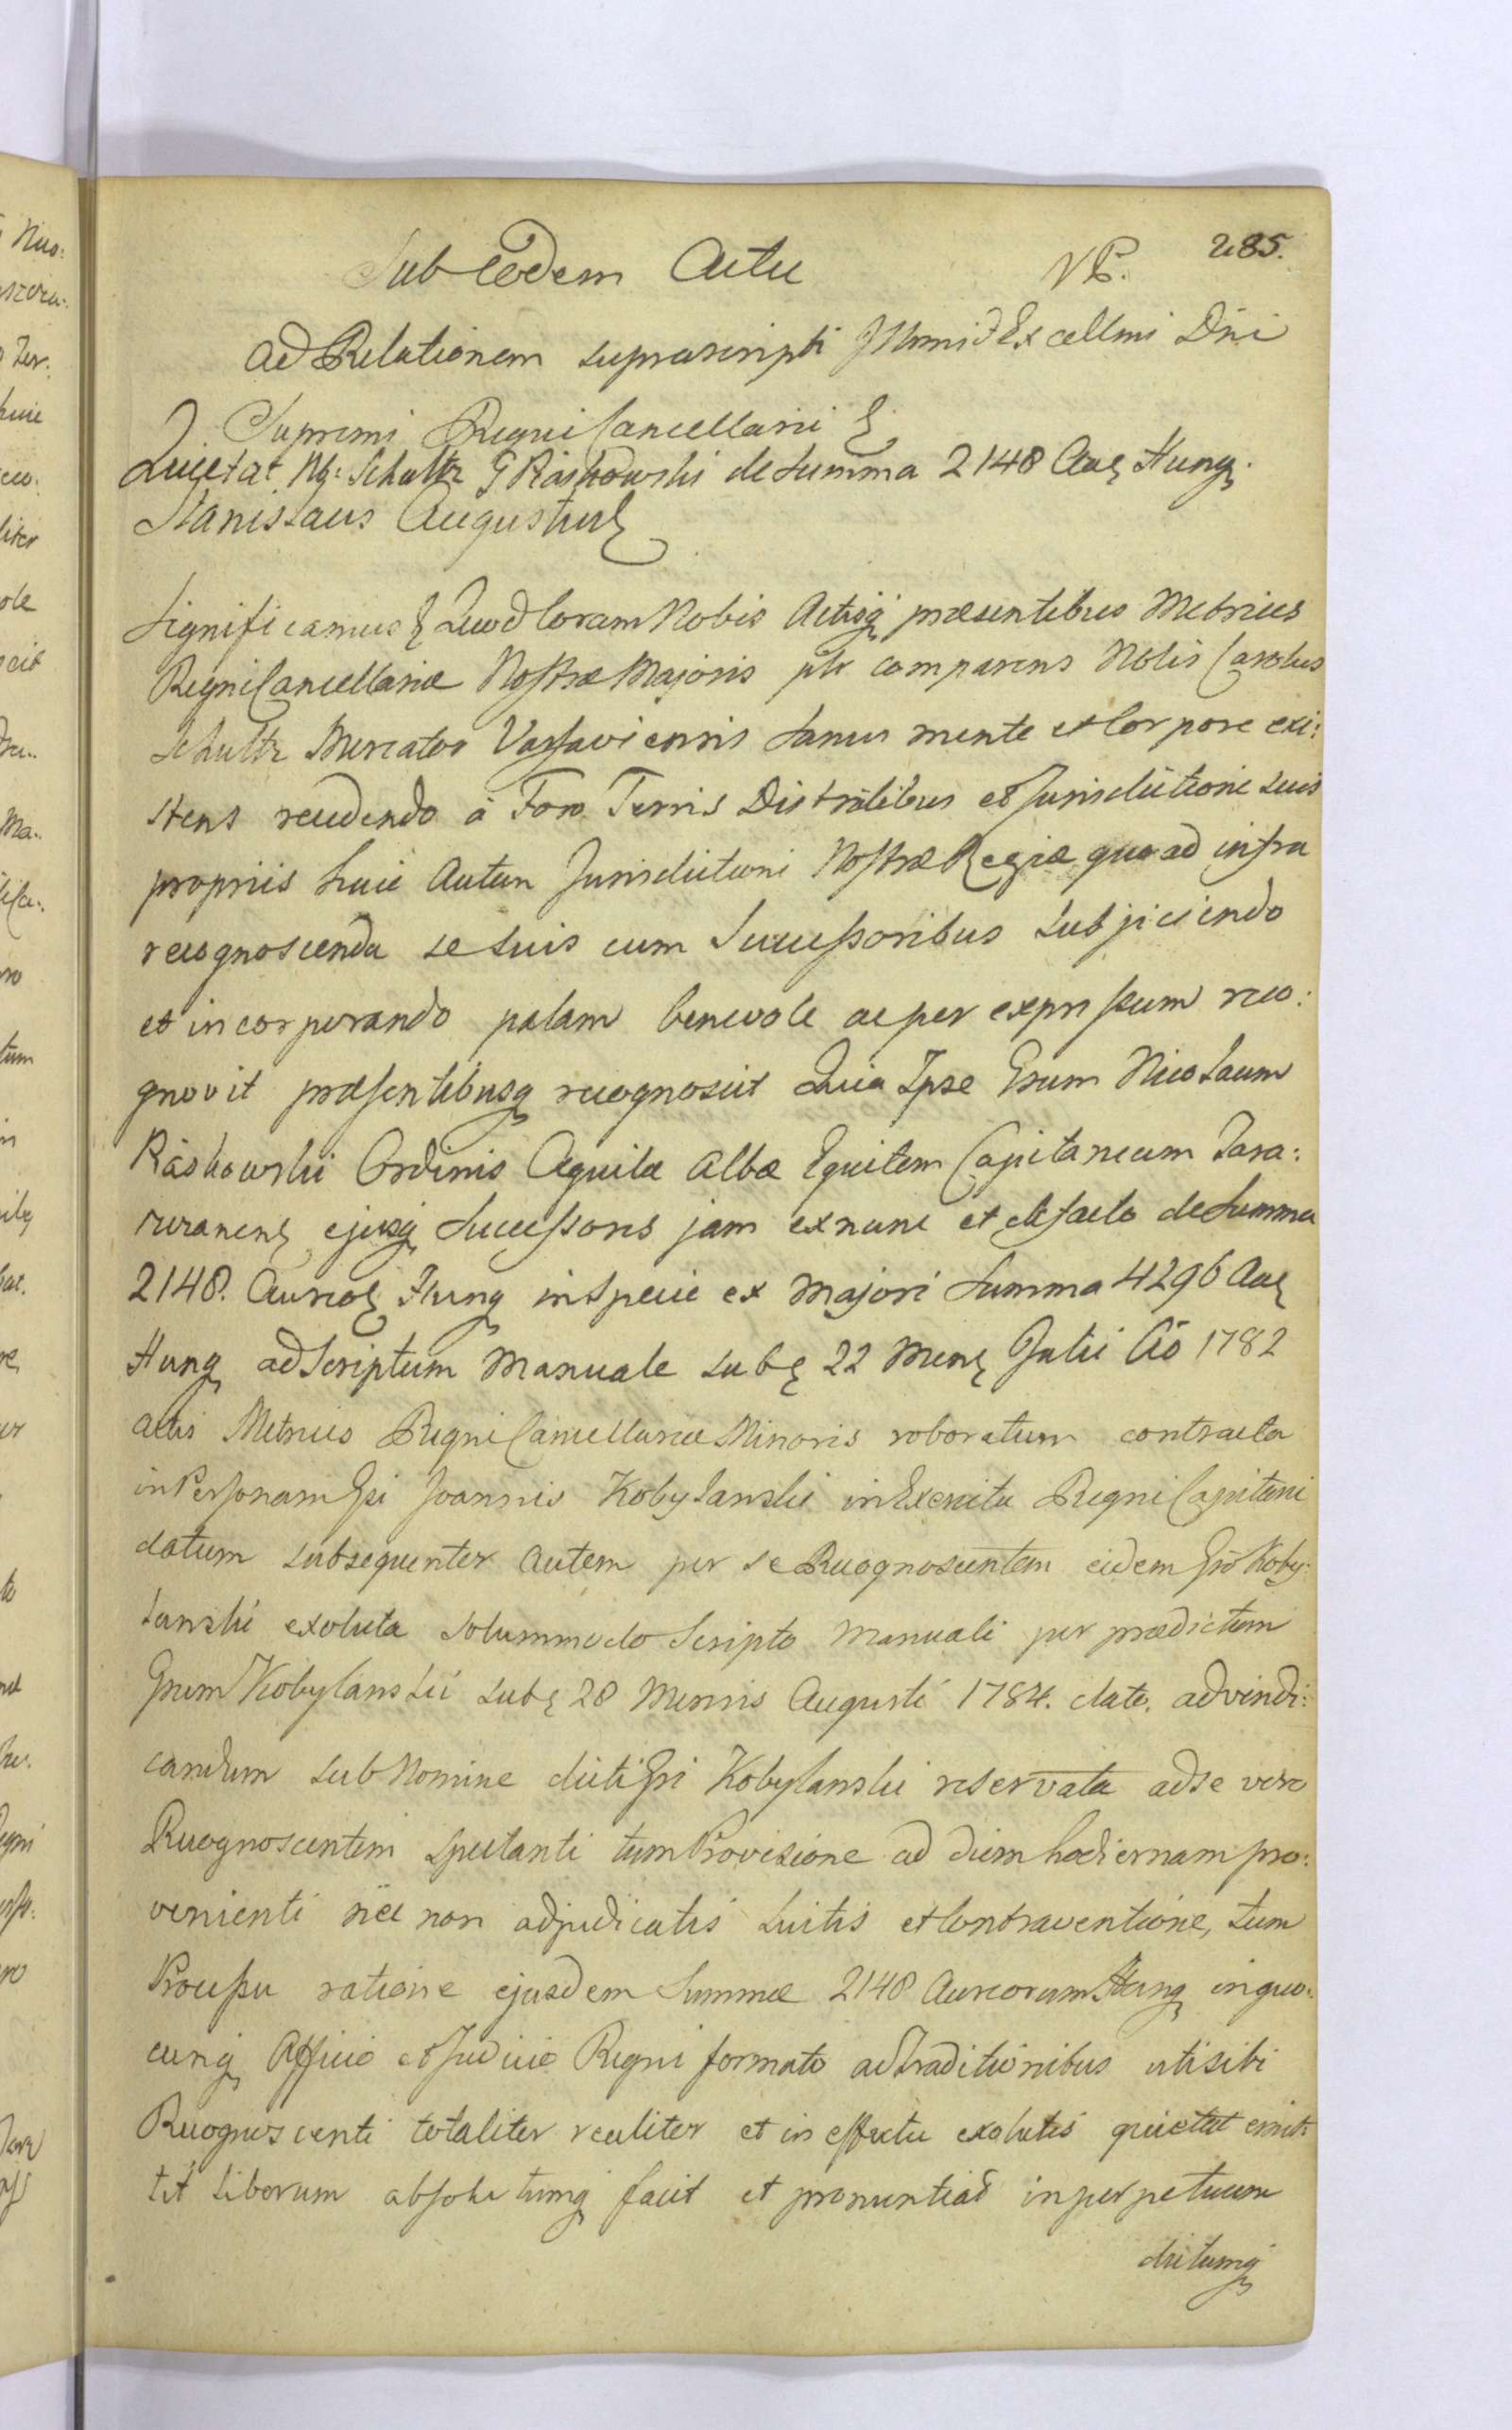 285.
Sub Eodem Actu
Ad Relationem suprascripti Illmi & Excellmi Dni
Supremi Regni Cancellarii
Quietat Nb: Schultz G Raskowski de Summa 2148 Auɛ Hung.
Stanislaus Augustus
Significamus Quod Coram Nobis Actisq præsentibus Metrices
Regni Cancellariæ Nostræ Majoris plr comparens Nblis Carolus
Schultz Mercator Varsaviensis Sanus mente et Corpore exi:
stens recedendo à Foro Terris Distrālibus et Jurisdictione suis
propriis huic Autem Jurisdictioni Nostræ Regiæ quoad infra
recognoscenda se suis cum Successoribus subjiciendo
et incorporando palam benevole ac per expressum reco:
gnovit præsentibusq recognoscit Quia Ipse Gsum Nicolaum
Raskowski Ordinis Aquilæ Albæ Equitem Capitaneum Tara:
ejusq Successores jam exnunc et de facto de Summa
2148. Aureoɛ Hung in Specie ex Majori Summa 4296 Auɛ
Hung ad Scriptum Manuale subɛ 22 Menɛ Julii Aō 1782
actis Metrices Regni Cancellariæ Minoris roboratum contracta
in Personam Gsi Joannis Kobylanski in Exercitu Regni Capitani
datum subsequenter autem per se Recognoscentem eidem Gsō Koby:
lanski exoluta solummodo Scripto Manuali per prædictum
Gsum Kobylanski subɛ 28 Mensis Augusti 1784. dato. ad vindi:
candum sub Nomine dicti Gsi Kobylanski reservata ad se vero
Recognoscentem spectanti tum Provisione ad diem hodiernam pro:
venienti nec non adjudicatis Luitis et Contraventione, tum
Processu ratione ejusdem Summæ 2148 Aureorum Hung in quo:
cunq Officio et Judicio Regni formato ac traditionibus uti sibi
Recognoscenti totaliter realiter et in effectu exolutis quietat emit:
tit liberum absolutumq facit et pronuntiat in perpetuum
dictumq